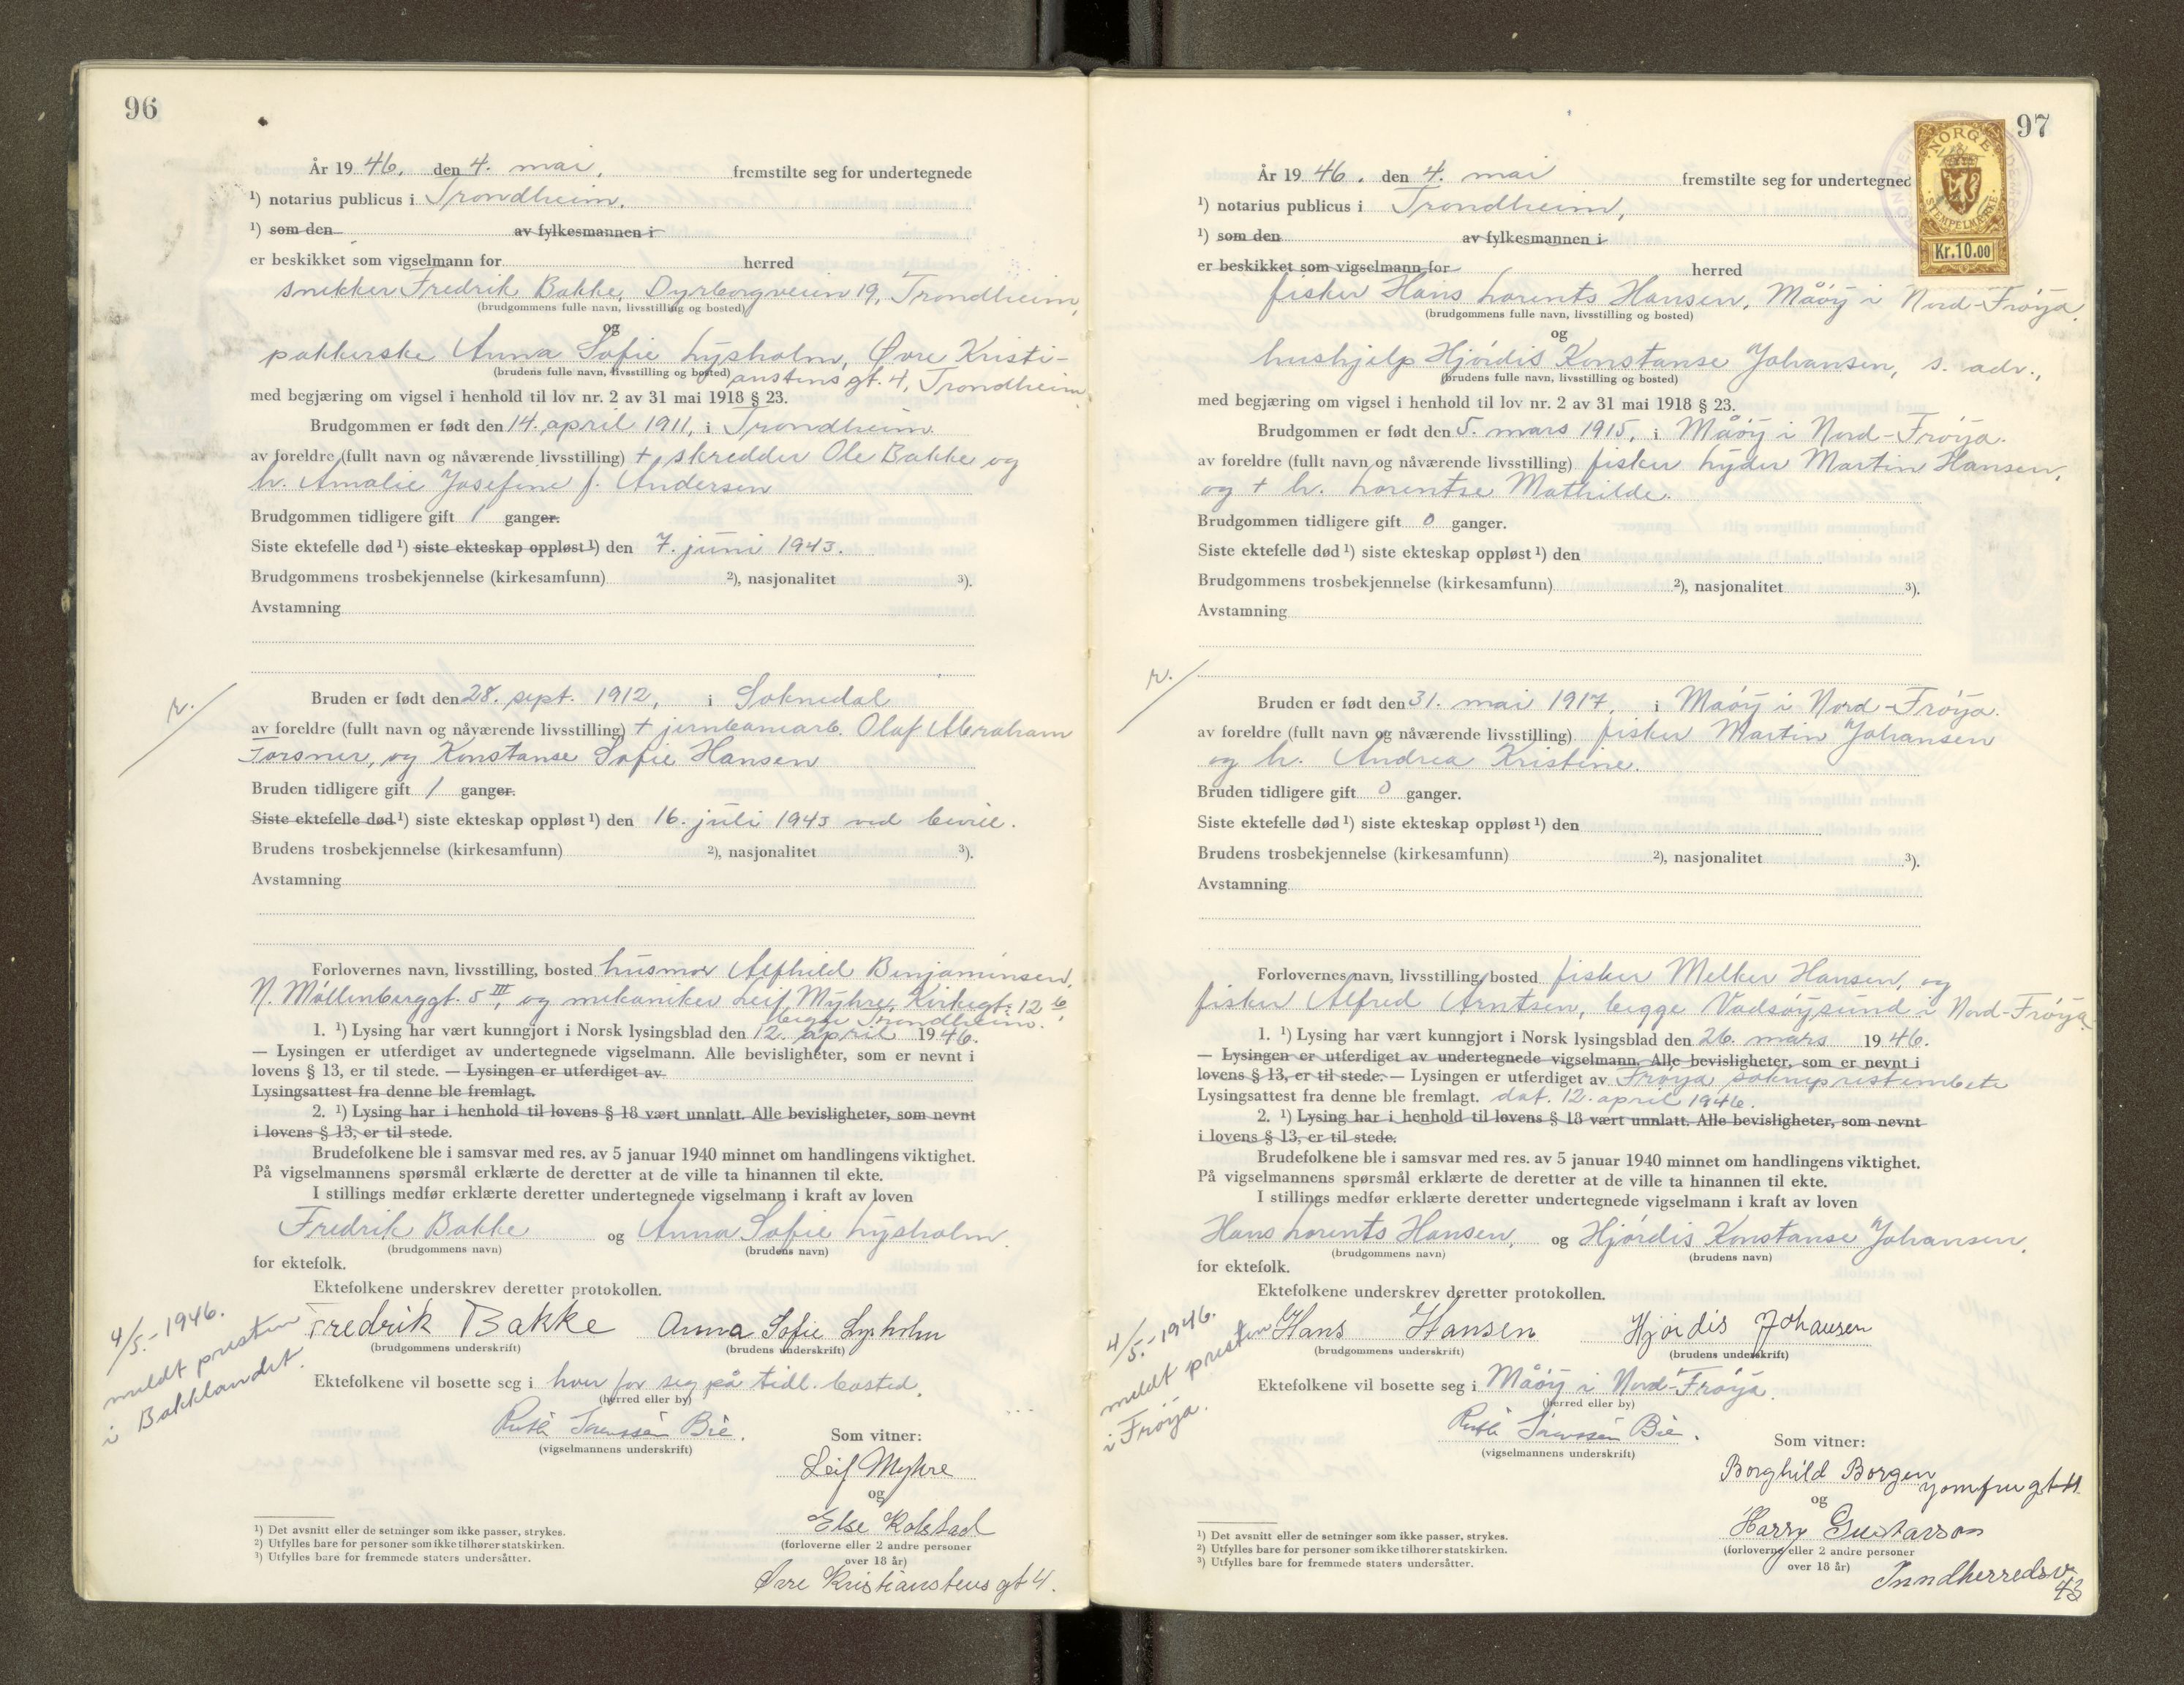 96
År 1946, den 4. mai, fremstilte seg for undertegnede
¹) notarius publicus i Trondheim,
¹) som den av fylkesmannen i
er beskikket som vigselmann for herred
snekker Fredrik Bakke, Dyrborgveien 19, Trondheim,
(brudgommens fulle navn, livsstilling og bosted)
og
pakkerske Anna Sofie Lysholm, Øvre Kristi-
(brudens fulle navn, livsstilling og bosted) anstens gt. 4, Trondheim,
med begjæring om vigsel i henhold til lov nr. 2 av 31 mai 1918 § 23.
Brudgommen er født den 14. april 1911, i Trondheim
av foreldre (fullt navn og nåværende livsstilling) + skredder Ole Bakke og
h. Amalie Josefine f. Andersen
Brudgommen tidligere gift 1 ganger.
Siste ektefelle død ¹) siste ekteskap oppløst ¹) den 7. juni 1943.
Brudgommens trosbekjennelse (kirkesamfunn) ²), nasjonalitet ³).
Avstamning
r.
Bruden er født den 28. sept. 1912, i Soknedal
av foreldre (fullt navn og nåværende livsstilling) + jernbanearb. Olaf Abraham
Forsner, og Konstanse Sofie Hansen
Bruden tidligere gift 1 ganger.
Siste ektefelle død ¹) siste ekteskap oppløst ¹) den 16. juli 1943 ved bevill.
Brudens trosbekjennelse (kirkesamfunn) ²), nasjonalitet ³).
Avstamning
Forlovernes navn, livsstilling, bosted husmor Alfhild Benjaminsen,
N. Møllenberggt. 5 III, og mekaniker Leif Myhre, Kirkegt. 12 b,
begge Trondheim.
1. ¹) Lysing har vært kunngjort i Norsk lysingsblad den 12. april 1946.
— Lysingen er utferdiget av undertegnede vigselmann. Alle bevisligheter, som er nevnt i
lovens § 13, er til stede. — Lysingen er utferdiget av
Lysingsattest fra denne ble fremlagt.
2. ¹) Lysing har i henhold til lovens § 18 vært unnlatt. Alle bevisligheter, som nevnt
i lovens § 13, er til stede.
Brudefolkene ble i samsvar med res. av 5 januar 1940 minnet om handlingens viktighet.
På vigselmannens spørsmål erklærte de deretter at de ville ta hinannen til ekte.
I stillings medfør erklærte deretter undertegnede vigselmann i kraft av loven
Fredrik Bakke og Anna Sofie Lysholm.
(brudgommens navn) (brudens navn)
for ektefolk.
Ektefolkene underskrev deretter protokollen.
4/5.-1946.
meldt presten
i Bakklandet.
Fredrik Bakke Anna Sofie Lysholm
(brudgommens underskrift) (brudens underskrift)
Ektefolkene vil bosette seg i hver for seg på tidl. bosted.
(herred eller by)
Ruth Sørenssen Bie.
(vigselmannens underskrift)
Som vitner:
Leif Myhre
og
Else Kolstad
(forloverne eller 2 andre personer
over 18 år)
Øvre Kristianstens gt 4.
¹) Det avsnitt eller de setninger som ikke passer, strykes.
²) Utfylles bare for personer som ikke tilhører statskirken.
³) Utfylles bare for fremmede staters undersåtter.
97
NORGE
STEMPELMERKE
Kr.10.00
År 1946. den 4. mai fremstilte seg for undertegned
¹) notarius publicus i Trondheim,
¹) som den av fylkesmannen i
er beskikket som vigselmann for herred
fisker Hans Lorents Hansen, Måøy i Nord-Frøya.
(brudgommens fulle navn, livsstilling og bosted)
og
hushjelp Hjørdis Konstanse Johansen, s. adr.,
(brudens fulle navn, livsstilling og bosted)
med begjæring om vigsel i henhold til lov nr. 2 av 31 mai 1918 § 23.
Brudgommen er født den 5. mars 1915, i Måøy i Nord-Frøya.
av foreldre (fullt navn og nåværende livsstilling) fisker Lyder Martin Hansen,
og + h. Lorentse Mathilde.
Brudgommen tidligere gift 0 ganger.
Siste ektefelle død ¹) siste ekteskap oppløst ¹) den
Brudgommens trosbekjennelse (kirkesamfunn) ²), nasjonalitet ³).
Avstamning
r.
Bruden er født den 31. mai 1917, i Måøy i Nord-Frøya.
av foreldre (fullt navn og nåværende livsstilling) fisker Martin Johansen
og h. Andrea Kristine.
Bruden tidligere gift 0 ganger.
Siste ektefelle død ¹) siste ekteskap oppløst ¹) den
Brudens trosbekjennelse (kirkesamfunn) ²), nasjonalitet ³).
Avstamning
Forlovernes navn, livsstilling, bosted fisker Melker Hansen, og
fisker Alfred Arntsen, begge Vadsøysund i Nord-Frøya.
1. ¹) Lysing har vært kunngjort i Norsk lysingsblad den 26. mars 1946.
— Lysingen er utferdiget av undertegnede vigselmann. Alle bevisligheter, som er nevnt i
lovens § 13, er til stede. — Lysingen er utferdiget av Frøya sokneprestembete
Lysingsattest fra denne ble fremlagt. dat. 12. april 1946.
2. ¹) Lysing har i henhold til lovens § 18 vært unnlatt. Alle bevisligheter, som nevnt
i lovens § 13, er til stede.
Brudefolkene ble i samsvar med res. av 5 januar 1940 minnet om handlingens viktighet.
På vigselmannens spørsmål erklærte de deretter at de ville ta hinannen til ekte.
I stillings medfør erklærte deretter undertegnede vigselmann i kraft av loven
Hans Lorents Hansen, og Hjørdis Konstanse Johansen.
(brudgommens navn) (brudens navn)
for ektefolk.
Ektefolkene underskrev deretter protokollen.
4/5.-1946.
meldt presten
i Frøya.
Hans Hansen Hjørdis Johansen
(brudgommens underskrift) (brudens underskrift)
Ektefolkene vil bosette seg i Måøy i Nord-Frøya.
(herred eller by)
Ruth Sørenssen Bie.
(vigselmannens underskrift)
Som vitner:
Borghild Borgen
Jomfrugt 11
og
Harry Gustavson
(forloverne eller 2 andre personer
over 18 år)
Inndherredsv.
43
¹) Det avsnitt eller de setninger som ikke passer, strykes.
²) Utfylles bare for personer som ikke tilhører statskirken.
³) Utfylles bare for fremmede staters undersåtter.